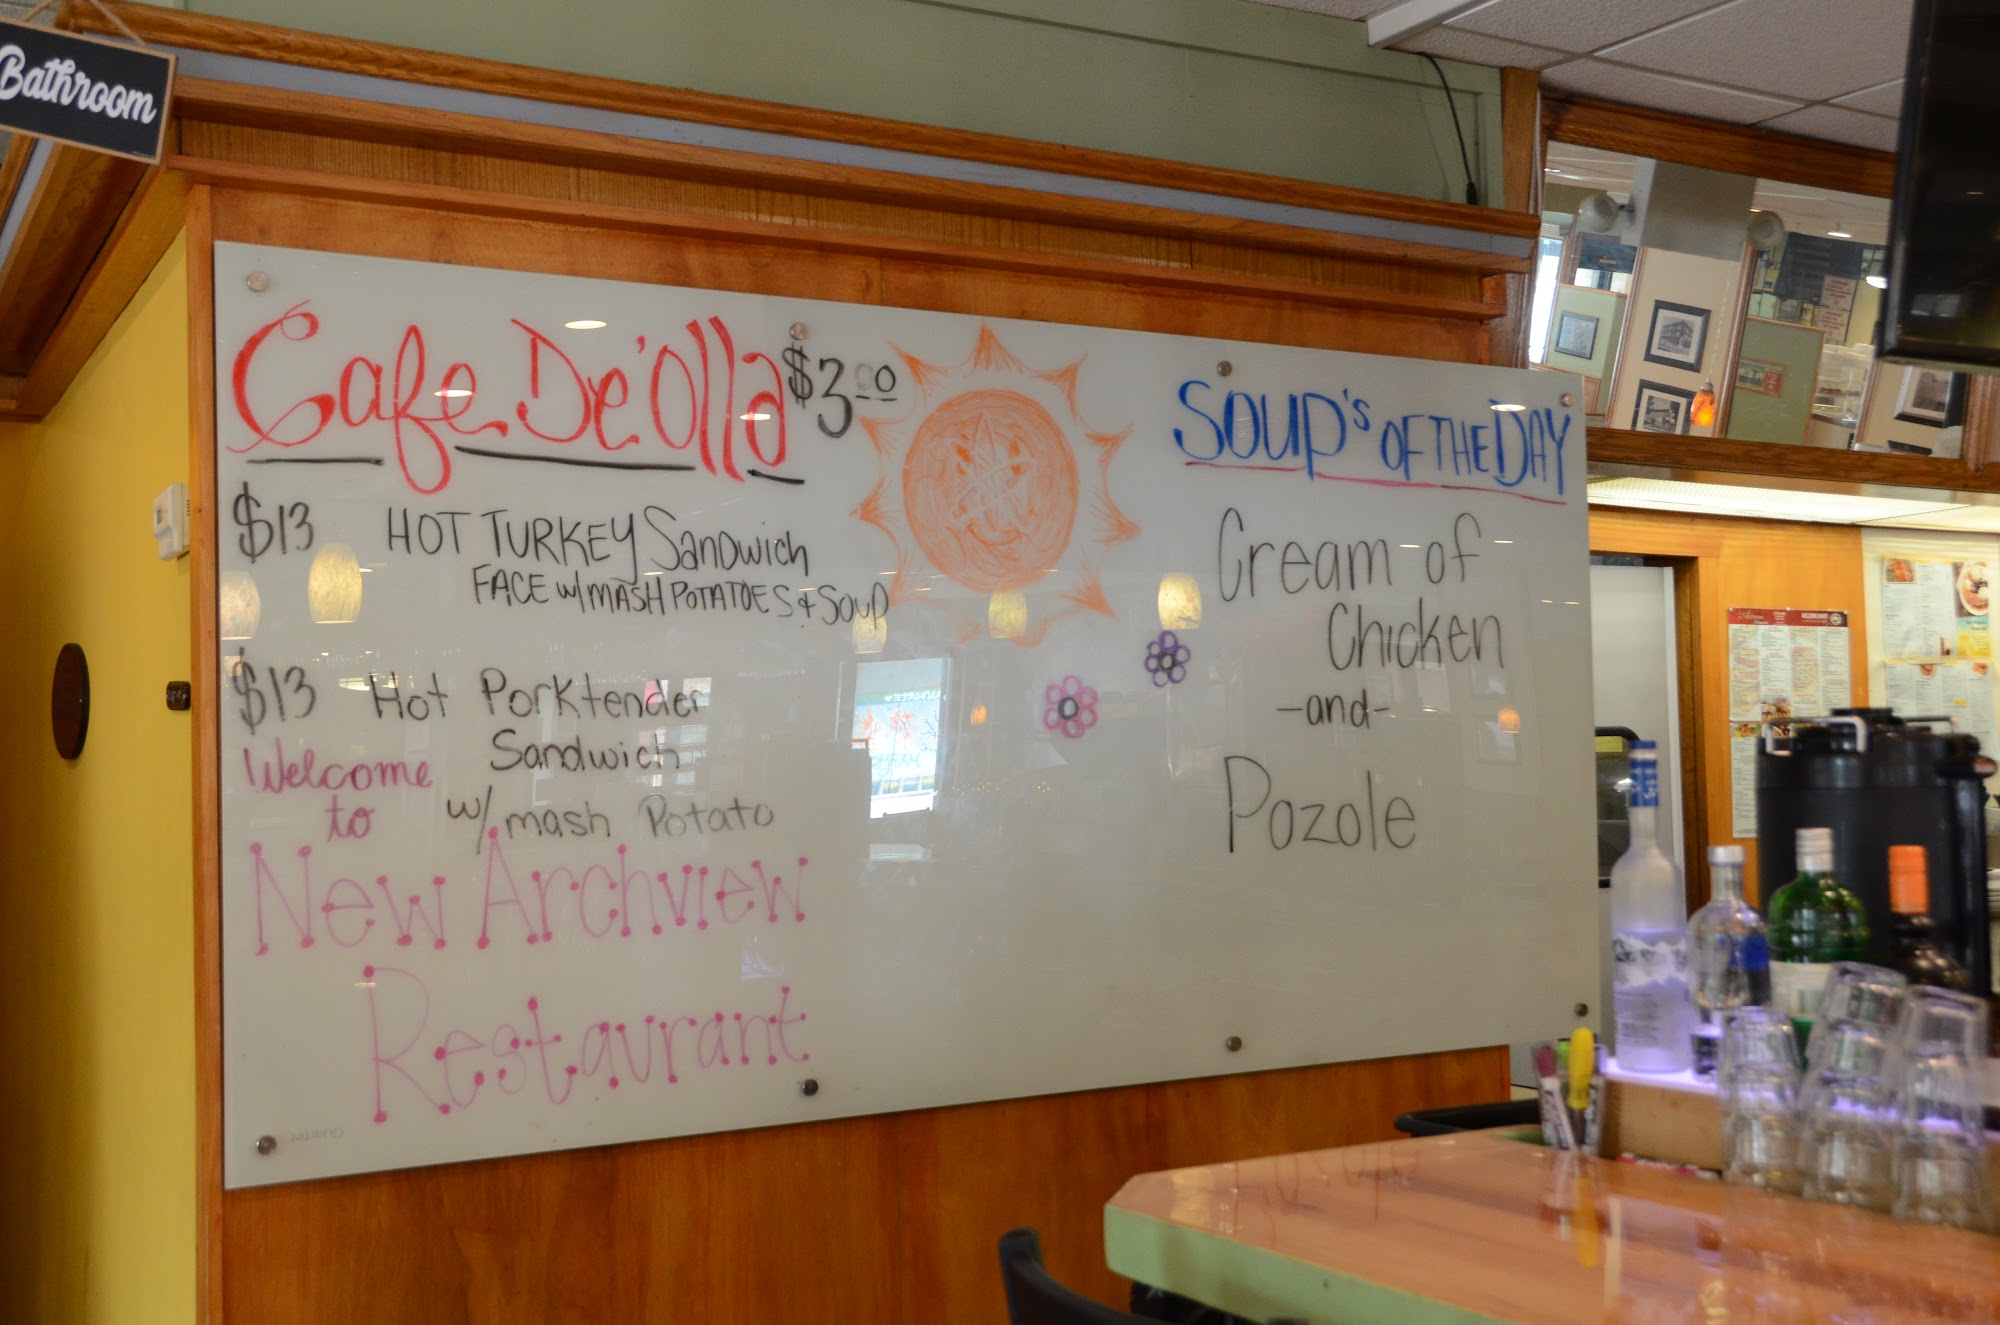 Bathroom
Cafe De'Olla $3.00
$13 HOT TURKEY Sandwich
FACE w/ MASH POTATOES & SOUP
$13 Hot Porktender
Sandwich
w/ mash Potato
Welcome
to
New Archview
Restaurant
Quartet
SOUP'S OF THE DAY
Cream of
Chicken
-and-
Pozole